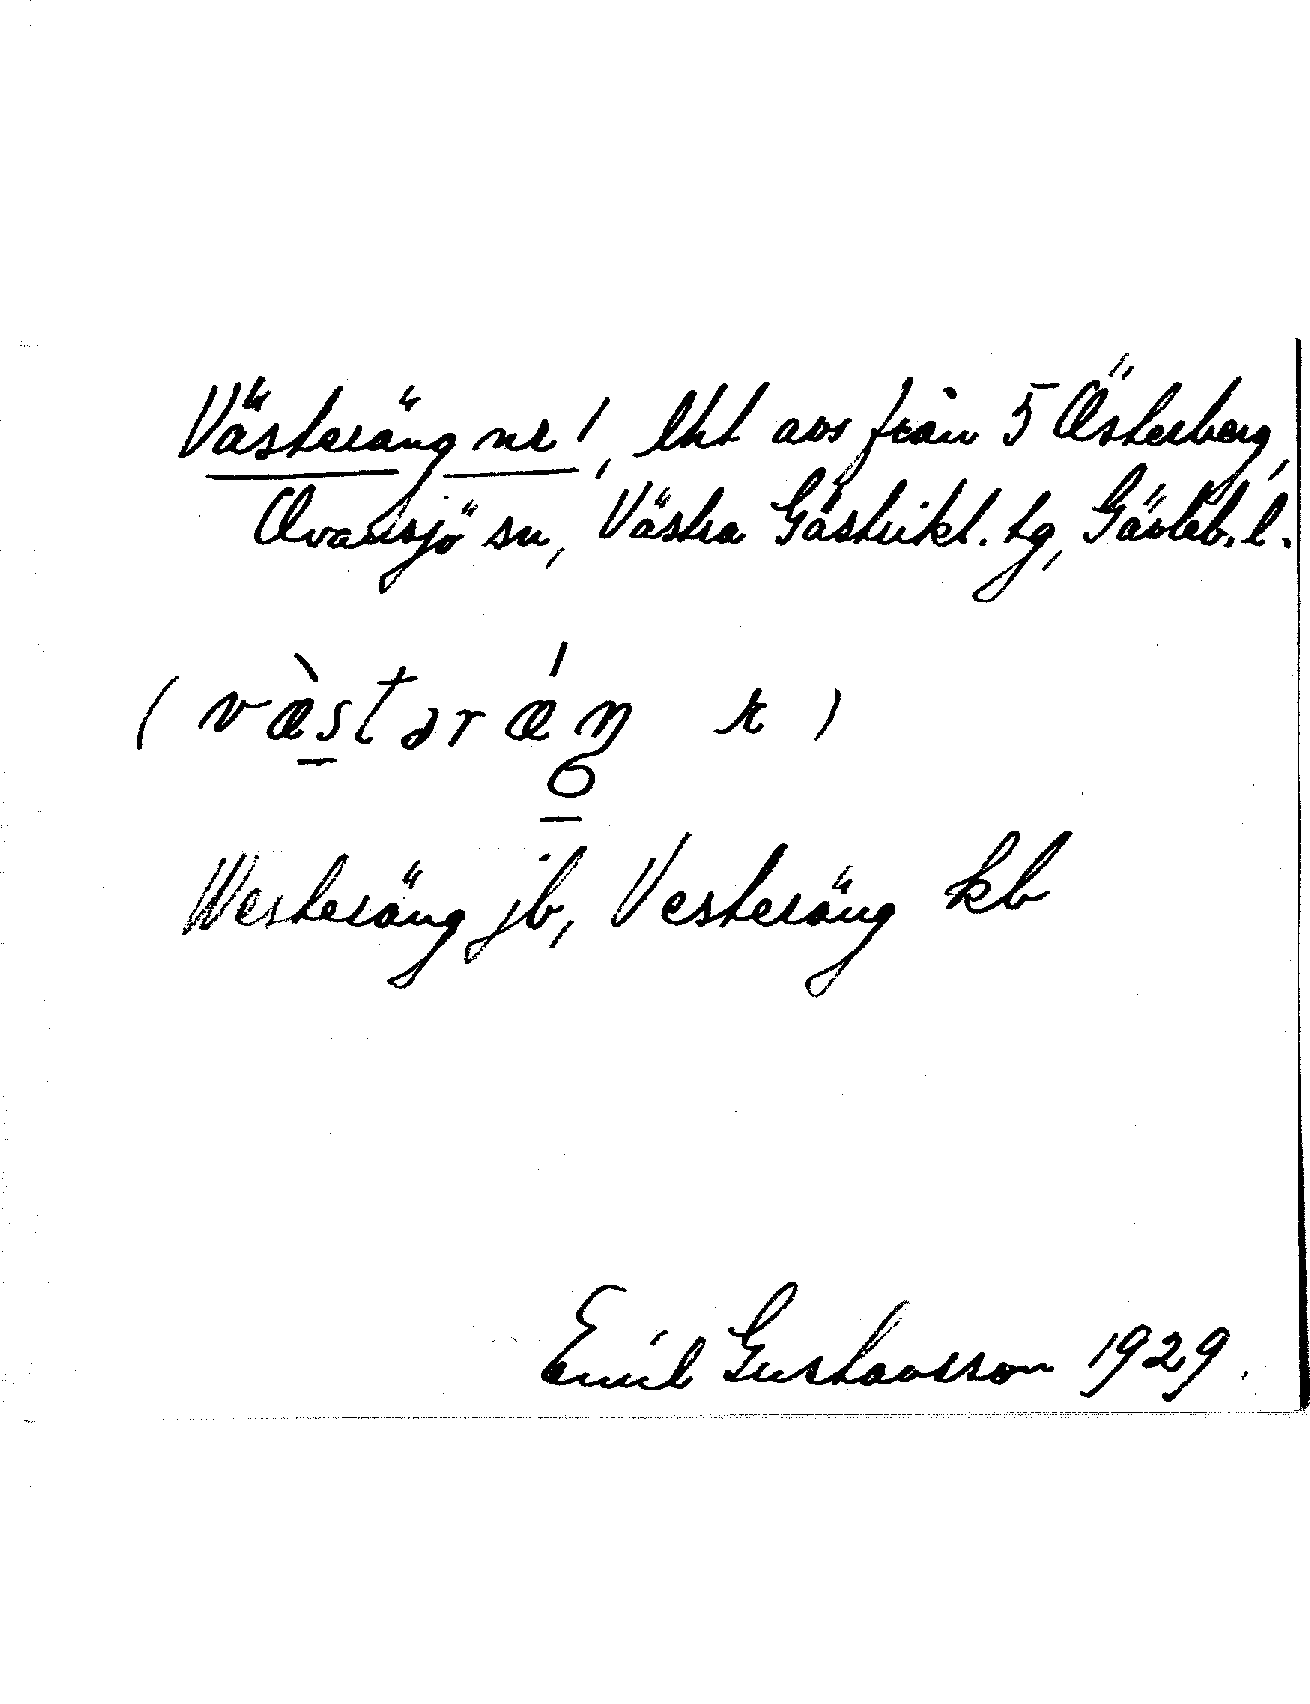 Västeräng nr 1, lht avs från 5 Österberg,
Ovansjö sn, Västra Gästrikl. tg, Gävleb. l.
(væ̀stərǽŋ r)
Westeräng jb, Vesteräng kb
Emil Gustavsson 1929.